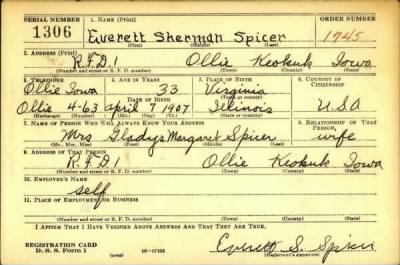 SERIAL NUMBER 1. NAME (Print) ORDER NUMBER
1306 Everett Sherman Spicer 1745
(First) (Middle) (Last)
2. ADDRESS (Print)
R.F.D.1 Ollie Keokuk Iowa
(Number and street or R. F. D. number) (Town) (County) (State)
3. TELEPHONE 4. AGE IN YEARS 5. PLACE OF BIRTH 6. COUNTRY OF CITIZENSHIP
Ollie Iowa 33 Virginia
DATE OF BIRTH (Town or county)
Ollie 4-63 April 7 1907 Illinois U.S.A
(Exchange) (Number) (Mo.) (Day) (Yr.) (State or country)
7. NAME OF PERSON WHO WILL ALWAYS KNOW YOUR ADDRESS 8. RELATIONSHIP OF THAT PERSON
Mrs Gladys Margaret Spicer wife
(Mr., Mrs., Miss) (First) (Middle) (Last)
9. ADDRESS OF THAT PERSON
R.F.D.1 Ollie Keokuk Iowa
(Number and street or R. F. D. number) (Town) (County) (State)
10. EMPLOYER'S NAME
self
11. PLACE OF EMPLOYMENT OR BUSINESS
(Number and street or R. F. D. number) (Town) (County) (State)
I AFFIRM THAT I HAVE VERIFIED ABOVE ANSWERS AND THAT THEY ARE TRUE.
REGISTRATION CARD Everett S. Spicer
D. S. S. Form 1 (over) 16—17105 (Registrant's signature)